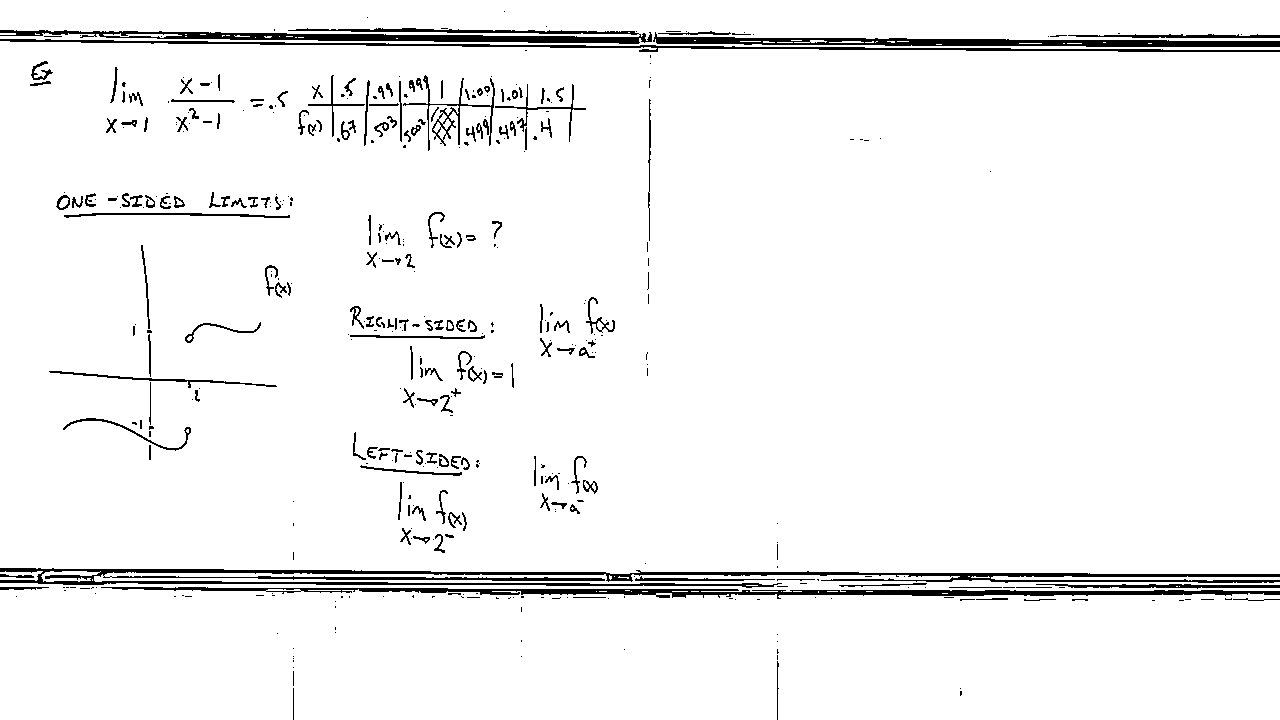 Ex lim x→1 (x-1)/(x²-1) = .5
x | .5 | .99 | .999 | 1 | 1.001 | 1.01 | 1.5 |
f(x) | .67 | .503 | .5002 | | .499 | .497 | .4 |
ONE-SIDED LIMITS:
lim x→2 f(x) = ?
f(x)
1
2
-1
RIGHT-SIDED: lim x→a⁺ f(x)
lim x→2⁺ f(x) = 1
LEFT-SIDED: lim x→a⁻ f(x)
lim x→2⁻ f(x)